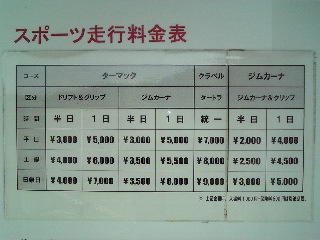 スポーツ走行料金表
コース ターマック グラベル ジムカーナ
区分 ドリフト&グリップ ジムカーナ タートラ ジムカーナ&グリップ
時間 半日 1日 半日 1日 統一 半日 1日
平日 ¥3,000 ¥5,000 ¥3,000 ¥5,000 ¥7,000 ¥2,000 ¥4,000
土曜 ¥4,000 ¥6,000 ¥3,500 ¥5,500 ¥8,000 ¥2,500 ¥4,500
日祭日 ¥4,000 ¥7,000 ¥3,500 ¥6,000 ¥9,000 ¥3,000 ¥5,000